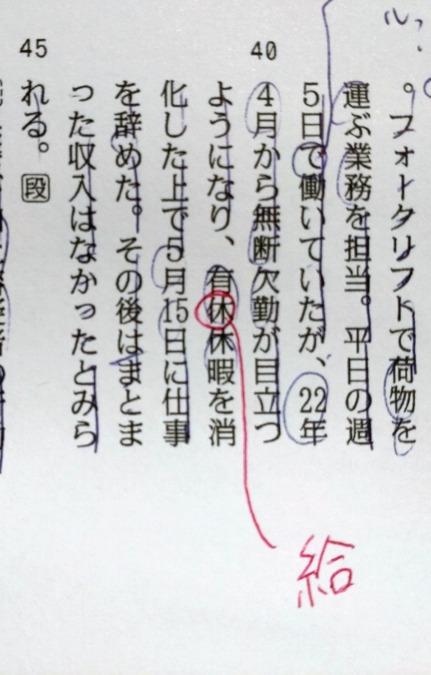 ル?
。フォークリフトで荷物を
運ぶ業務を担当。平日の週
5日で働いていたが、22年
40
4月から無断欠勤が目立つ
ようになり、有休休暇を消
化した上で5月15日に仕事
を辞めた。その後はまとま
った収入はなかったとみら
45
れる。段
給